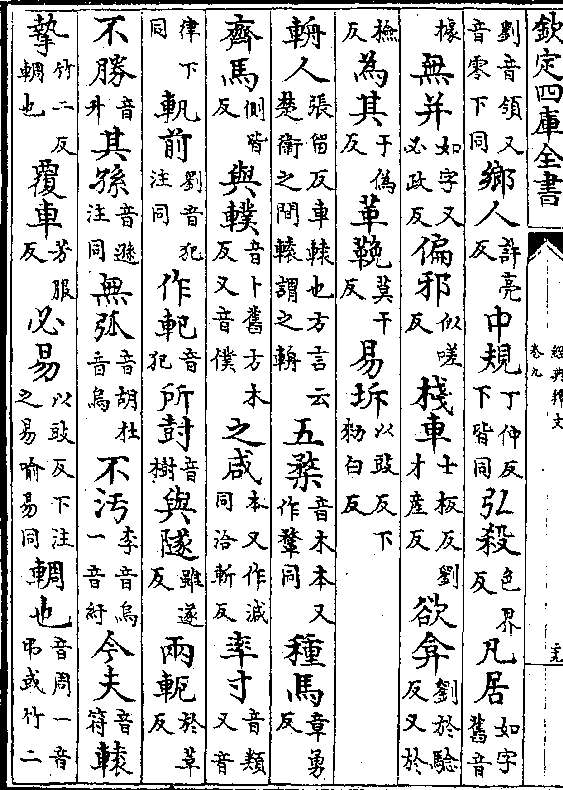 欽定四庫全書
經典釋文
卷九
劉音領又音零下同鄉人許亮反中規丁仲反下皆同弘殺色界反凡居如字舊音
據無并如字又必政反偏邪似嗟反棧車士板反劉才產反欲弇劉於驗反又於
檢反為其于偽反革鞔莫干反易坼以豉反下勑白反
輈人張留反車轅也方言云楚衛之間轅謂之輈五楘音木本又作鞪同種馬章勇反
齊馬側皆反與轐音卜舊方木反又音僕之咸本又作減同洽斬反率寸音類又音
律下同軓前劉音犯注同作軓音犯所尌音樹與隧雖遂反兩軛於革反
不勝音升其孫音遜注同無弧音胡杜音烏不汚李音烏一音紆今夫音符轅
摯竹二反輖也覆車芳服反必易以豉反下注之易喻易同輖也音周一音弔或竹二